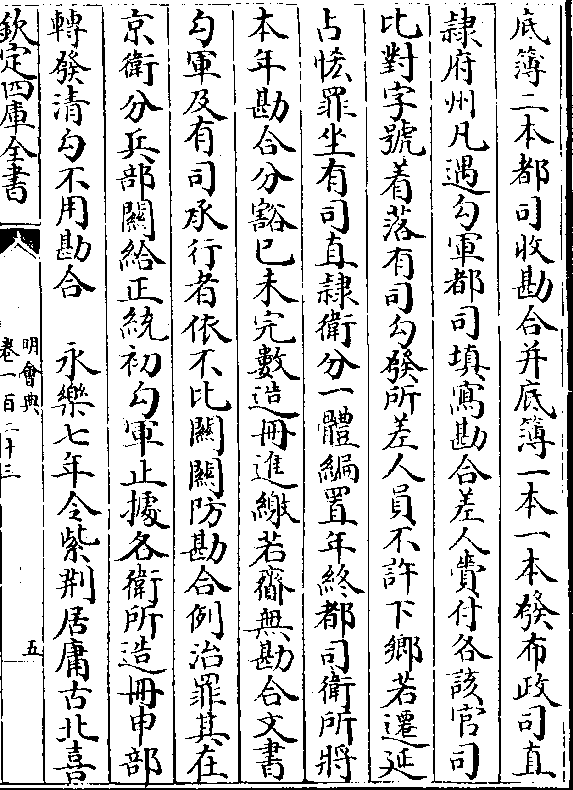 底簿二本都司收勘合并底簿一本一本發布政司直
隸府州凡遇勾軍都司填寫勘合差人賫付各該官司
比對字號着落有司勾發所差人員不許下鄉若遷延
占恡罪坐有司直隸衛分一體編置年終都司衛所將
本年勘合分豁已未完數造冊進繳若齎無勘合文書
勾軍及有司承行者依不比關關防勘合例治罪其在
京衛分兵部關給正統初勾軍止據各衛所造冊申部
轉發清勾不用勘合　永樂七年令紫荆居庸古北喜
欽定四庫全書
明會典
卷一百二十三
五